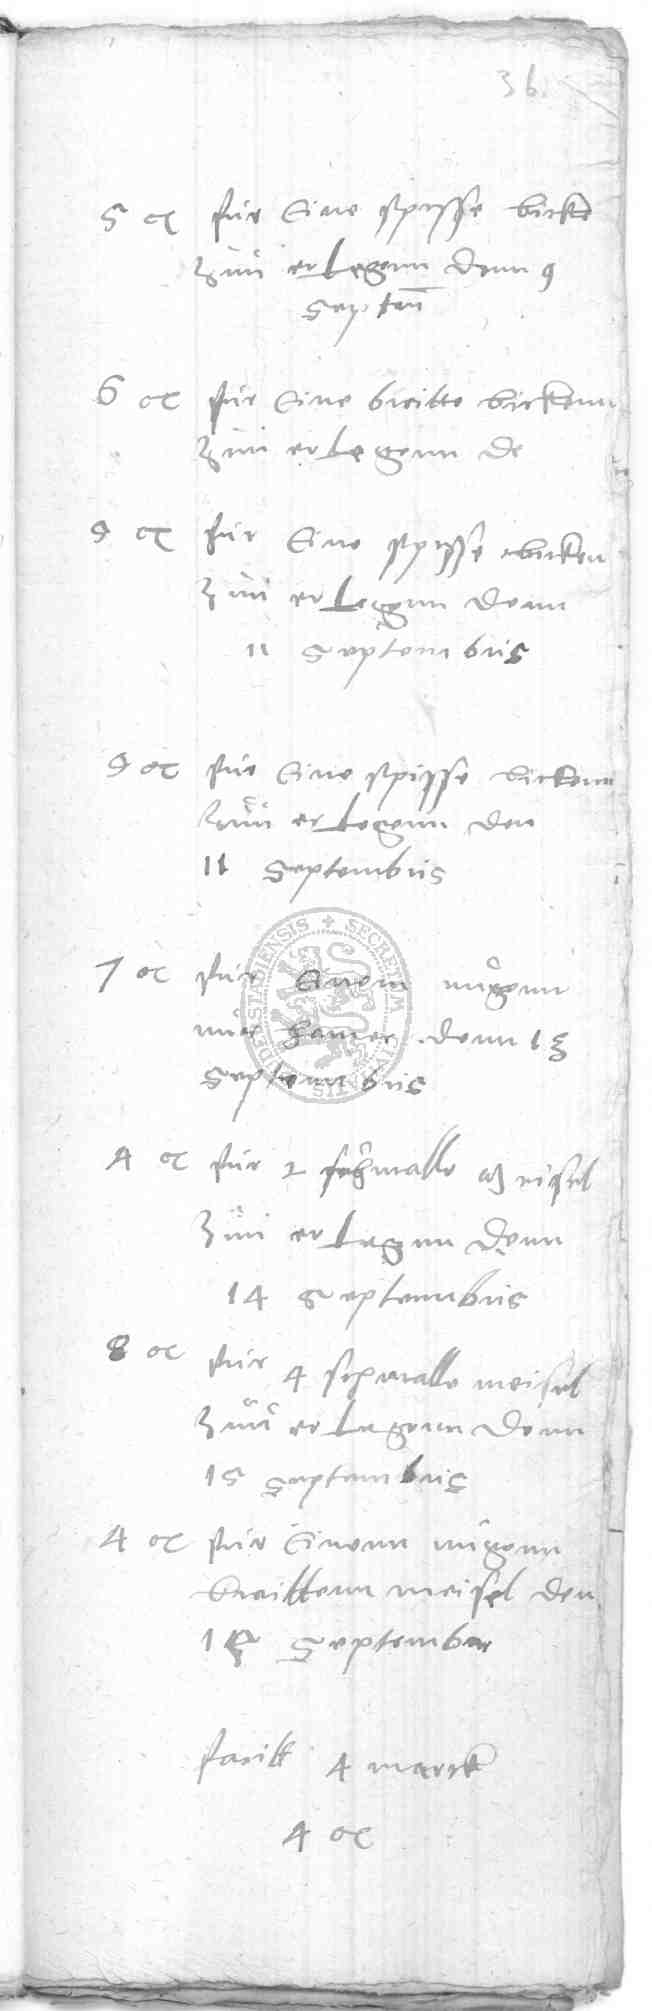 36
5 ß für Eine spysse bicke
Zúú erlegenn denn 9
Septem
6 ß für Eine breitte bickenn
Zúú erlegenn de
9 ß für Eine spysse bicken
Zúú erlegenn denn
11 Septembris
9 ß für Eine spisse bickenn
Zúú erlegenn den
11 Septembris
7 ß für Einenn núgenn
múr hamer denn 13
Septembris
4 ß für 2 schmalle meisel
Zúú erlegenn denn
14 Septembris
8 ß für 4 schmalle meisel
Zúú erlegenn denn
15 Septembris
4 ß für Einenn núgenn
breittenn meisel den
Septembre
facitt 4 marck
4 ß
SECRETUM CIVITATIS IDESTADIENSIS